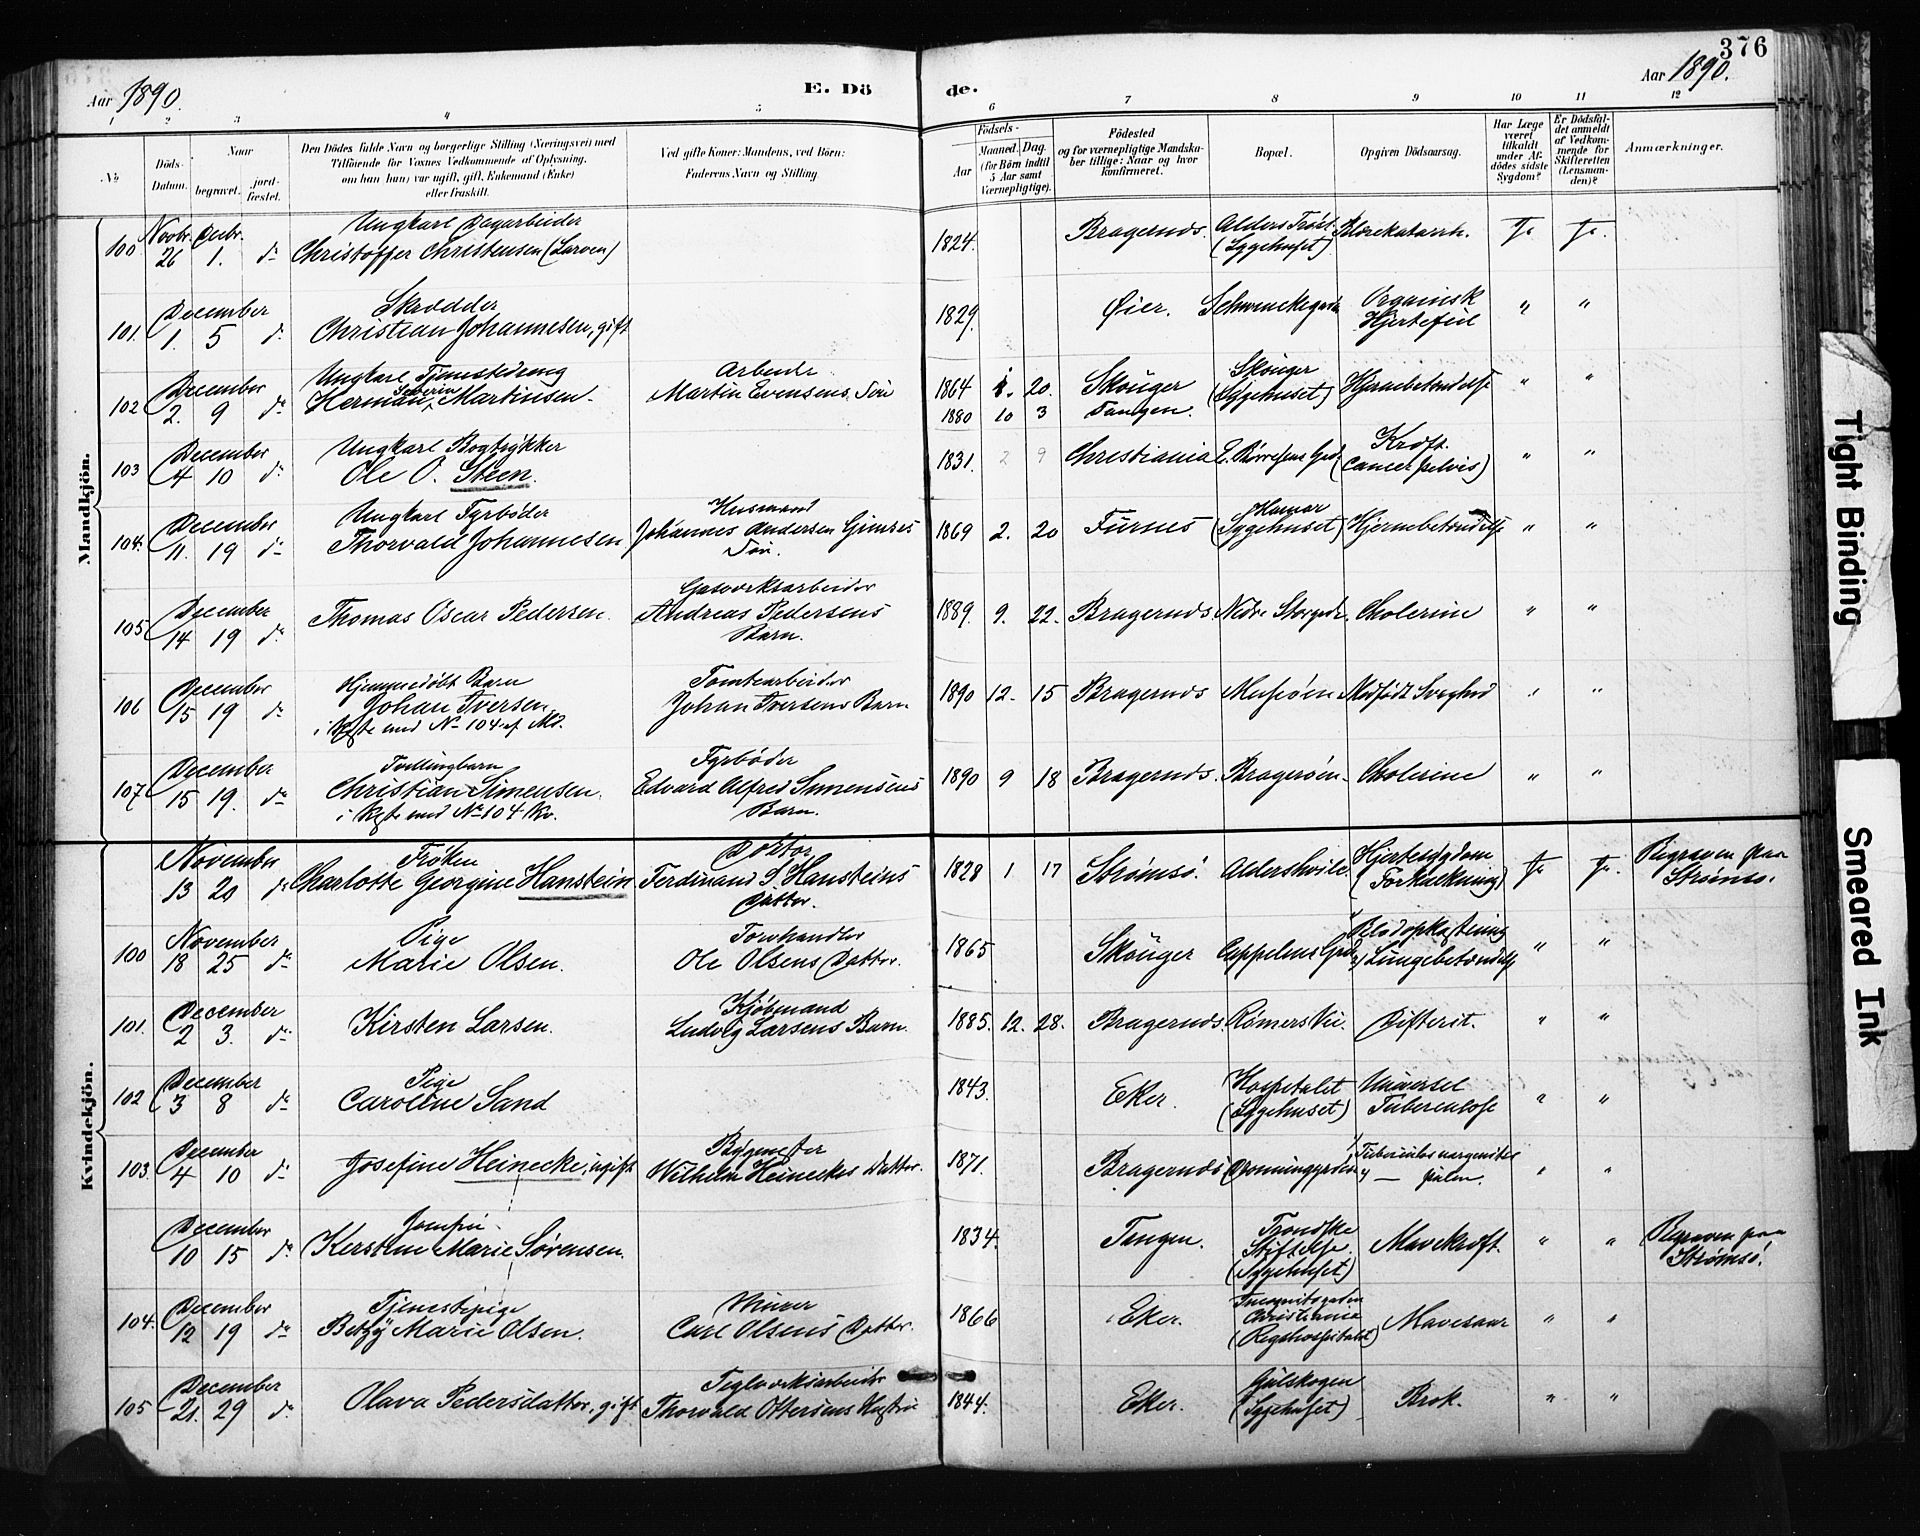 376
Aar 1890.
E. Dö de.
Aar 1890.
1 2 3 4 5 6 7 8 9 10 11 12
No
Döds-Datum.
Naar begravet. jordfæstet.
Den Dödes fulde Navn og borgerlige Stilling (Næringsvei) med Tilföiende for Voxnes Vedkommende af Oplysning, om han (hun) var ugift, gift, Enkemand (Enke) eller fraskilt.
Ved gifte Koner: Mandens, ved Börn: Faderens Navn og Stilling.
Födsels-
Aar
Maaned. Dag. (for Börn indtil 5 Aar samt Værnepligtige).
Födested og for værnepligtige Mandskaber tillige: Naar og hvor konfirmeret.
Bopæl.
Opgiven Dödsaarsag.
Har Læge været tilkaldt under Afdödes sidste Sygdom?
Er Dödsfaldet anmeldt af Vedkommende for Skifteretten (Lensmanden)?
Anmærkninger.
Mandkjön.
100 Novbr. 26 Decbr. 1. do Ungkarl Dagarbeider Christoffer Christensen (Larven) 1824. Bragernæs. Alders Trøst (Sygehuset) Blærekatarrh. Ja Ja.
101. December 1. 5 do Skrædder Christian Johannesen, gift 1829. Øier. Schwenckegaden Organisk Hjertefeil " "
102 December 2. 9 do Ungkarl Tjenestedreng Herman Severin Martinsen. Arbeider Martin Evensens Søn 1864 1. 20. Skouger Skouger (Sygehuset) Hjernebetændelse " "
1880 10 3 Tangen.
103 December 4 10 do Ungkarl Bogtrykker Ole O. Steen. 1831. 2 9 Christiania E. Børresens Gd. Kræft. (Cancer pelvis) " "
104. December 11. 19 do Ungkarl Fyrbøder Thorvald Johannesen Husmand Johannes Andersen Gimses Søn. 1869 2. 20 Furnes Hamar (Sygehuset) Hjernebetændelse " "
105 December 14 19 do Thomas Oscar Pedersen. Gasværksarbeider Andreas Pedersens Barn. 1889. 9. 22. Bragernæs. Nedre Storgade. Cholerine " "
106 December 15 19 do Hjemmedøbt Barn Johan Iversen. i Kiste med No 104 af Md. Tomtearbeider Johan Iversens Barn 1890 12. 15 Bragernæs Medfødt Svaghed " "
107 December 15 19. do Tvillingbarn Christian Simensen. i Kiste med No 104 Kv. Fyrbøder Edvard Alfred Simensens Barn. 1890 9 18 Bragernæs. Bragerøen Cholerine " "
Kvindekjön.
November 13 20 do Frøken Charlotte Georgine Hanstein Doktor Ferdinand S. Hansteins Datter. 1828 1 17 Strømsø. Aldershvile. Hjertesygdom (Forkalkning) Ja Ja. Begraven paa Strømsø.
100 November 18 25 do Pige Marie Olsen. Torvhandler Ole Olsens Datter. 1865 Skouger Cappelens Gd. Blodopkastning 2) Lungebetændelse " "
101. December 2 3. do Kirsten Larsen. Kjøbmand Ludvig Larsens Barn. 1885. 12. 28. Bragernæs. Rømers Vei. Difterit. " "
102 December 3 8 do Pige Caroline Sand 1843. Eker. Hospitalet (Sygehuset) Universel Tuberculose " "
103. December 4 10 do Josefine Heinecke, ugift Bygmester Wilhelm Heineckes Datter. 1871. Bragernæs Dronninggaden 1) 2) — pulm. " "
December 10 15 do Jomfru Kirstine Marie Sørensen. 1834. Tangen. Trondske Stiftelse. (Sygehuset) Mavekræft. " " Begraven paa Strømsø.
104. December 12 19 do Tjenestepige Betzy Marie Olsen. Murer Carl Olsens Datter. 1866 Eker. Christiania (Rigshospitalet) Mavesaar " "
105 December 21. 29 do Olava Pedersdatter, gift Teglværksarbeider Thorvald Ottersens Hustru 1844. Eker. Gulskogen (Sygehuset) Brok. " "
Tight Binding
Smeared Ink